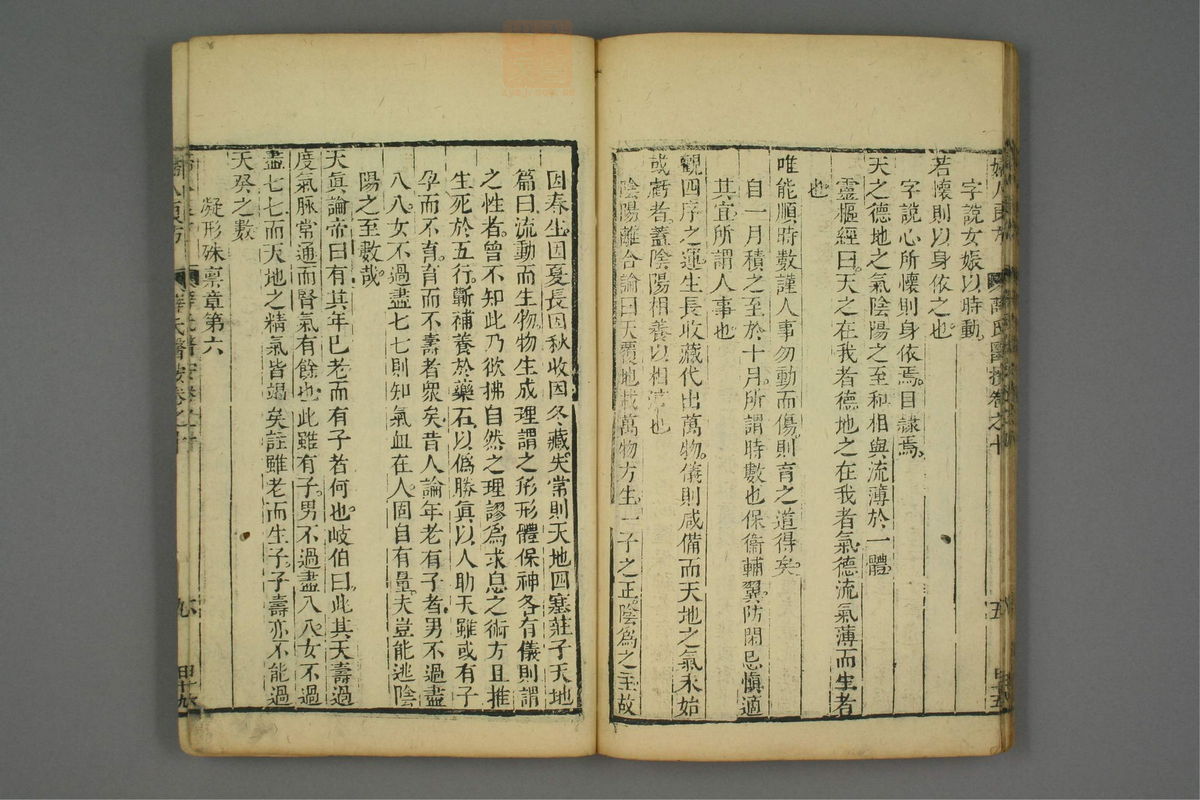 字說女娠以時動
若懷則以身依之也
字說心所懷則身依焉目隸焉
天之德地之氣陰陽之至和相與流薄於一體
靈樞經曰天之在我者德地之在我者氣德流氣薄而生者
也
唯能順時數謹人事勿動而傷則育之道得矣
自一月積之至於十月所謂時數也保衛輔翼防閑忌慎適
其宜所謂人事也
觀四序之運生長收藏代出萬物儀則咸備而天地之氣未始
或虧者蓋陰陽相養以相濟也
陰陽離合論曰天覆地載萬物方生一子之正陰為之主故
因春生因夏長因秋收因冬藏失常則天地四塞莊子天地
篇曰流動而生物物生成理謂之形形體保神各有儀則謂
之性者曾不知此乃欲拂自然之理謬為求息之術方且推
生死於五行蘄補養於藥石以偽勝真以人助天雖或有子
孕而不育育而不壽者衆矣昔人論年老有子者男不過盡
八八女不過盡七七則知氣血在人固自有量夫豈能逃陰
陽之至數哉
天真論帝曰有其年已老而有子者何也岐伯曰此其天壽過
度氣脉常通而腎氣有餘也此雖有子男不過盡八八女不過
盡七七而天地之精氣皆竭矣註雖老而生子子壽亦不能過
天癸之數
凝形殊稟章第六